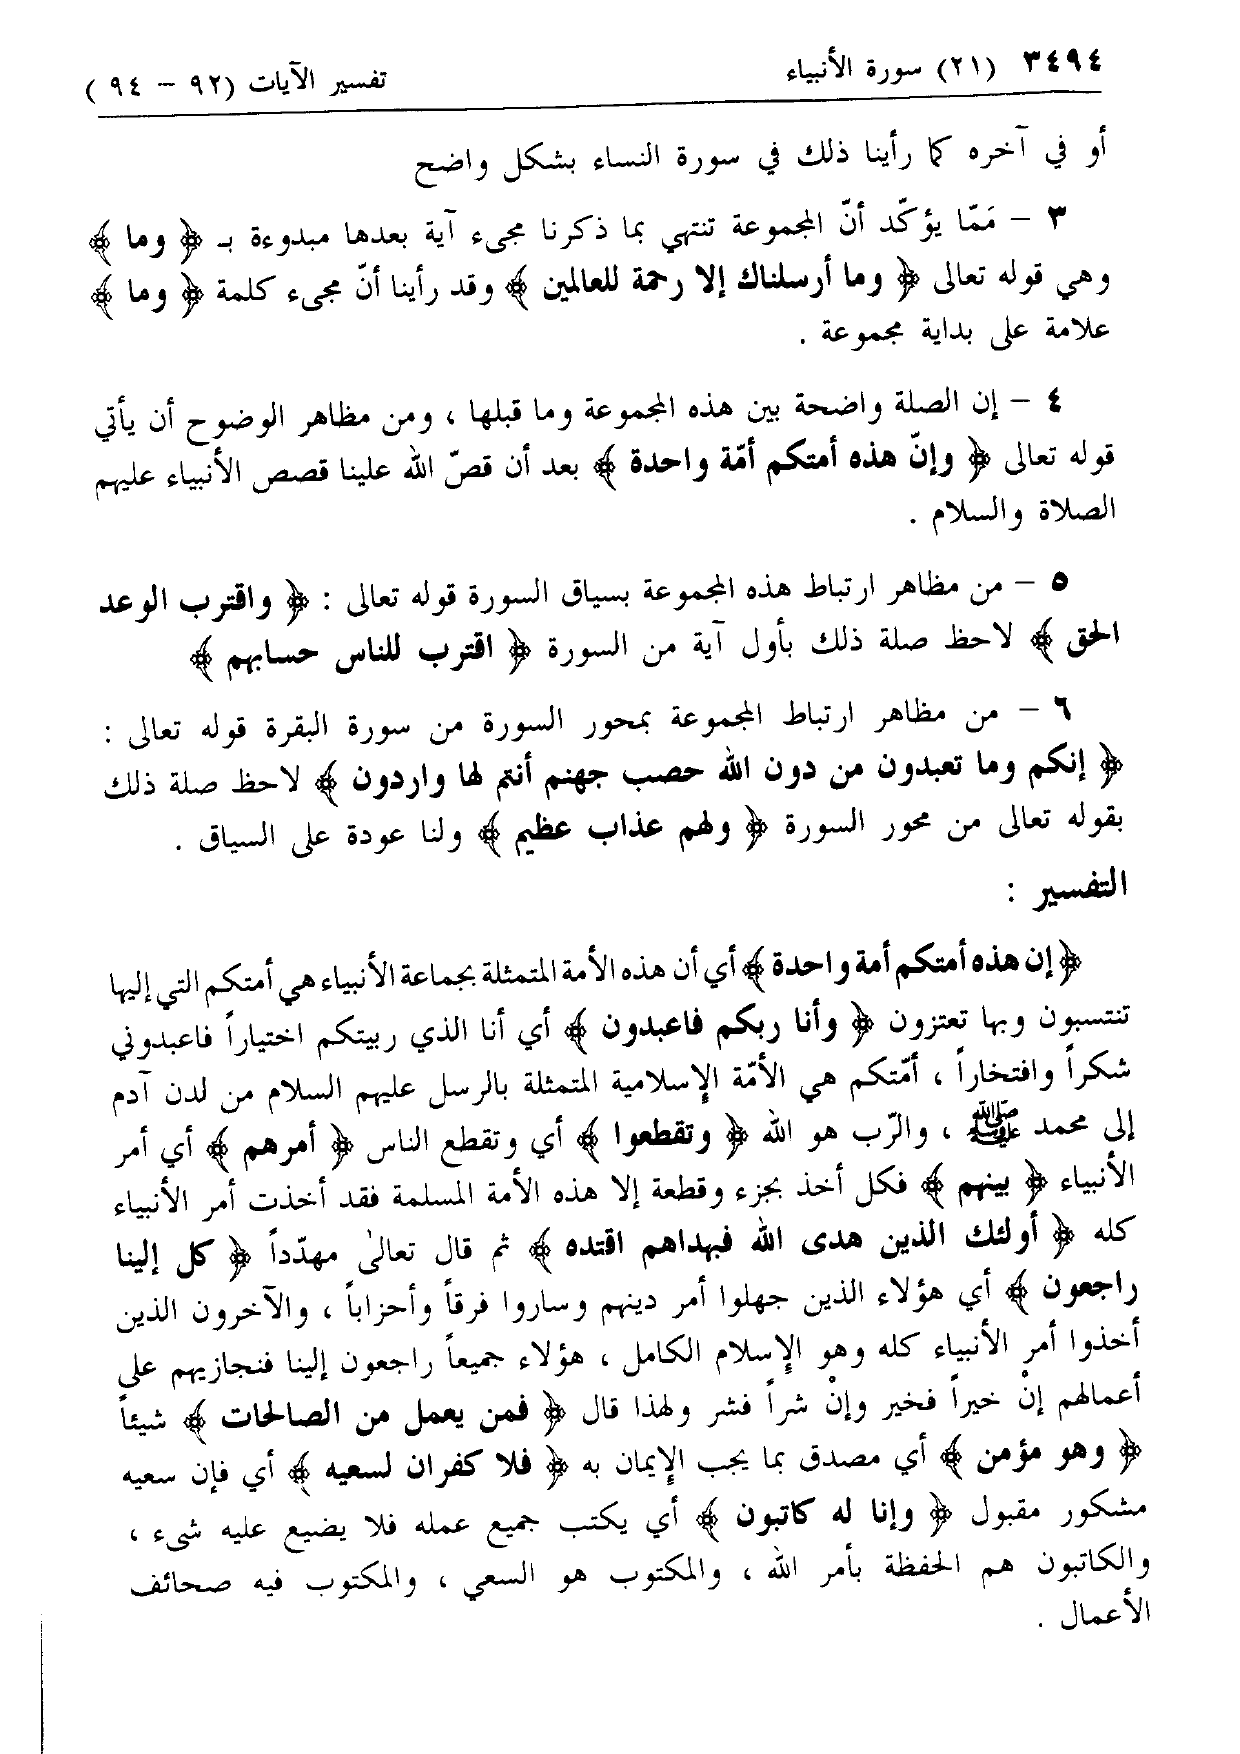 ٣٤٩٤ (٢١) سورة الأنبياء تفسير الآيات (٩٢ – ٩٤ )
أو في آخره كما رأينا ذلك في سورة النساء بشكل واضح
٣ – مَمّا يؤكّد أنّ المجموعة تنتهي بما ذكرنا مجىء آية بعدها مبدوءة بـ ﴿ وما ﴾
وهي قوله تعالى ﴿ وما أرسلناك إلا رحمة للعالمين ﴾ وقد رأينا أنّ مجىء كلمة ﴿ وما ﴾
علامة على بداية مجموعة .
٤ – إن الصلة واضحة بين هذه المجموعة وما قبلها ، ومن مظاهر الوضوح أن يأتي
قوله تعالى ﴿ وإنّ هذه أمتكم أمّة واحدة ﴾ بعد أن قصّ الله علينا قصص الأنبياء عليهم
الصلاة والسلام .
٥ – من مظاهر ارتباط هذه المجموعة بسياق السورة قوله تعالى : ﴿ واقترب الوعد
الحق ﴾ لاحظ صلة ذلك بأول آية من السورة ﴿ اقترب للناس حسابهم ﴾
٦ – من مظاهر ارتباط المجموعة بمحور السورة من سورة البقرة قوله تعالى :
﴿ إنكم وما تعبدون من دون الله حصب جهنم أنتم لها واردون ﴾ لاحظ صلة ذلك
بقوله تعالى من محور السورة ﴿ ولهم عذاب عظيم ﴾ ولنا عودة على السياق .
التفسير :
﴿ إن هذه أمتكم أمة واحدة ﴾ أي أن هذه الأمة المتمثلة بجماعة الأنبياء هي أمتكم التي إليها
تنتسبون وبها تعتزون ﴿ وأنا ربكم فاعبدون ﴾ أي أنا الذي ربيتكم اختياراً فاعبدوني
شكراً وافتخاراً ، أمّتكم هي الأمّة الإسلامية المتمثلة بالرسل عليهم السلام من لدن آدم
إلى محمد ﷺ ، والرّب هو الله ﴿ وتقطعوا ﴾ أي وتقطع الناس ﴿ أمرهم ﴾ أي أمر
الأنبياء ﴿ بينهم ﴾ فكل أخذ بجزء وقطعة إلا هذه الأمة المسلمة فقد أخذت أمر الأنبياء
كله ﴿ أولئك الذين هدى الله فبهداهم اقتده ﴾ ثم قال تعالىٰ مهدّداً ﴿ كل إلينا
راجعون ﴾ أي هؤلاء الذين جهلوا أمر دينهم وساروا فرقاً وأحزاباً ، والآخرون الذين
أخذوا أمر الأنبياء كله وهو الإسلام الكامل ، هؤلاء جميعاً راجعون إلينا فنجازيهم على
أعمالهم إنْ خيراً فخير وإنْ شراً فشر ولهذا قال ﴿ فمن يعمل من الصالحات ﴾ شيئاً
﴿ وهو مؤمن ﴾ أي مصدق بما يجب الإيمان به ﴿ فلا كفران لسعيه ﴾ أي فإن سعيه
مشكور مقبول ﴿ وإنا له كاتبون ﴾ أي يكتب جميع عمله فلا يضيع عليه شىء ،
والكاتبون هم الحفظة بأمر الله ، والمكتوب هو السعي ، والمكتوب فيه صحائف
الأعمال .